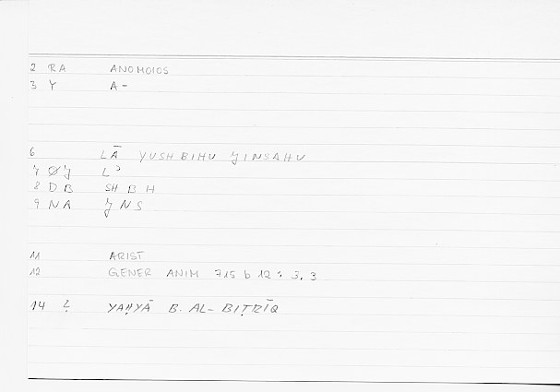 2 RA ANOMOIOS
3 Y A-
6 LĀ YUSHBIHU JINSAHU
7 ØJ Lʾ
8 DB SHBH
9 NA JNS
11 ARIST
12 GENER ANIM 715 b 12 : 3.3
14 Ḷ YAḤYĀ B. AL-BIṬRĪQ